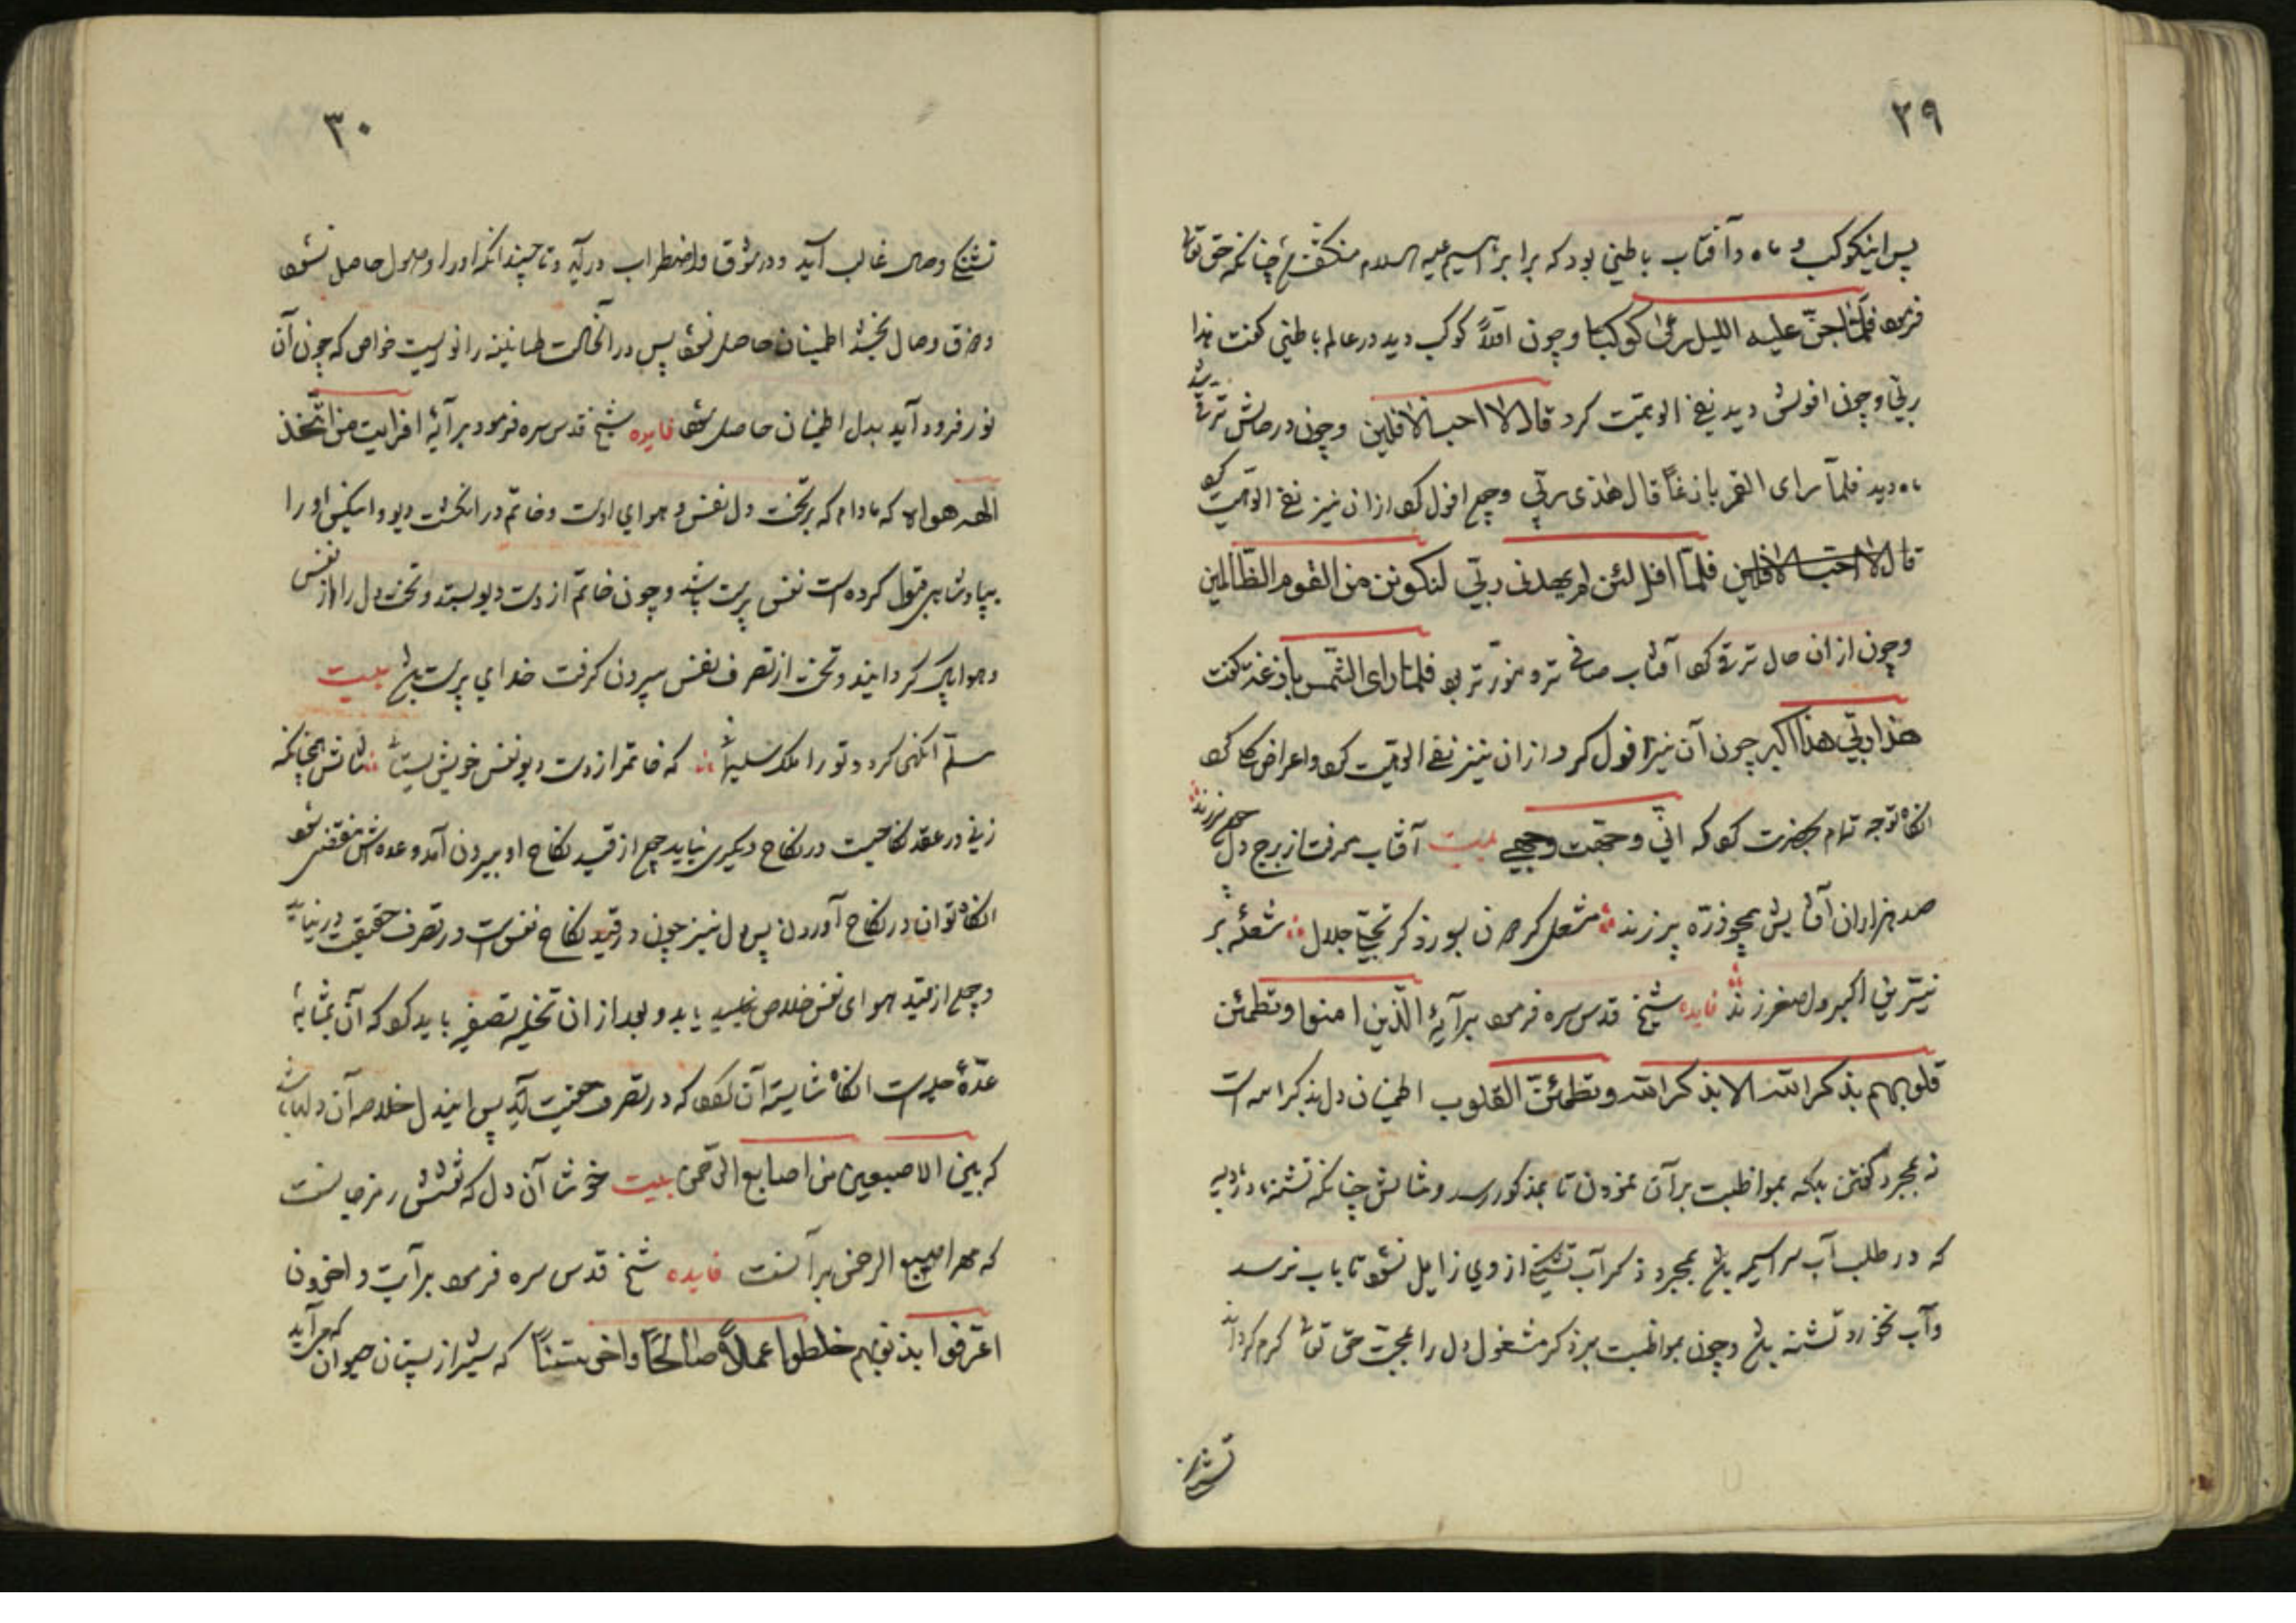 ٢٩
پس این کوکب و ماه و آفتاب باطنی بود که برابر ابراهیم علیه السلام منکشف شد چنانکه حق تعالی
فرمود فلمّا جنّ علیه اللیل رءی کوکبا و چون اوّلاً کوکب دید در عالم باطنی کفت هذا
ربّی و چون افولش دید نفی الوهیّت کرد قال لا احب الافلین و چون در حالش ترقی شد
ماه دید فلمّا رای القمر بازغاً قال هذی ربّی و چون افول کرد ازان نیز نفی الوهیت کرد
قال لا احبّ الافلین فلمّا افل لئن لم یهدنی ربّی لنکونن من القوم الظّالمین
و چون ازان حال ترقی کرد آفتاب صافی تر و منوّر تر بود فلمّا رای الشّمس بازغة کفت
هذا ربّی هذا اکبر چون آن نیز افول کرد ازان نیز نفی الوهیّت کرد و اعراض کلی کرد
انکاه توجه تمام بحضرت کرد که انّی وجّهت وجهی بیت آفتاب معرفت از برج دل چون سر زند
صد هزاران آفتابش همچو ذرّه پر زند مشعل کردون بسوزد کر تجلّی جلال شعلهٔ بر
نیّرین اکبر و اصغر زند فایده شیخ قدس سره فرمود بر آیهٔ الّذین امنوا و تطمئن
قلوبهم بذکر الله الا بذکر الله و تطمئنّ القلوب اطمینان دل بذکر الله است
نه بمجرد کفتن بلکه بمواظبت بر آن نمودن تا بمذکور رسد و مثالش چنانکه تشنه
که در طلب آب سراسیمه باشد بمجرد ذکر آب تشنکی از وی زایل نشود تا بآب نرسد
و آب نخورد تشنه باشد و چون بمواظبت بر ذکر مشغول دل را بمحبّت حق تعالی کرم کرداند
تشنکی
٣٠
تشنکی وصال غالب آید و در شوق و اضطراب درآید و تا چندانکه او را وصول حاصل نشود
و ذوق وصال نچشد اطمینان حاصل نشود پس در انحالت طمانینه را نوریست خواص که چون آن
نور فرود آید بدل اطمینان حاصل شود فایده شیخ قدس سره فرمود بر آیهٔ افرایت من اتّخذ
الهه هواه که مادام که بر تخت دل نفس و هوای اوست و خاتم در انکشت دیو و این کس او را
بپادشاهی قبول کرده است نفس پرست باشد و چون خاتم از دست دیو بستد و تخت دل را از نفس
و هوا پاک کردانید و تخت از تصرف نفس بیرون کرفت خدای پرست باشد بیت
مسلّم آنکهی کردد تو را ملک سلیمانی که خاتم از دست دیو نفس خویش بستانی مثالش همچنانکه
زنی در عقد نکاحیست در نکاح دیکری نیاید چون از قید نکاح او بیرون آمد و عده اش منقضی شود
انکاه توان در نکاح آوردن پس دل نیز چون در قید نکاح نفس است در تصرف حقیقت در نیاید
و چون از قید هوای نفس خلاص یابد و بعد ازان تخلیه تصفیه باید کرد که آن بمثابهٔ
عدّهٔ است انکاه شایسته آن شود که در تصرف حقیقت آید پس ایندل خلاصه آن دلها باشد
که بین الاصبعین من اصابع الرّحمن بیت خوشا آن دل که نقشش رمز جانست
که مهر اصبع الرحمن بر آنست فایده شیخ قدس سره فرمود بر آیت و اخرون
اعترفوا بذنوبهم خلطوا عملاً صالحاً و اخر سیّئاً که شیر از پستان حیوان که می آید